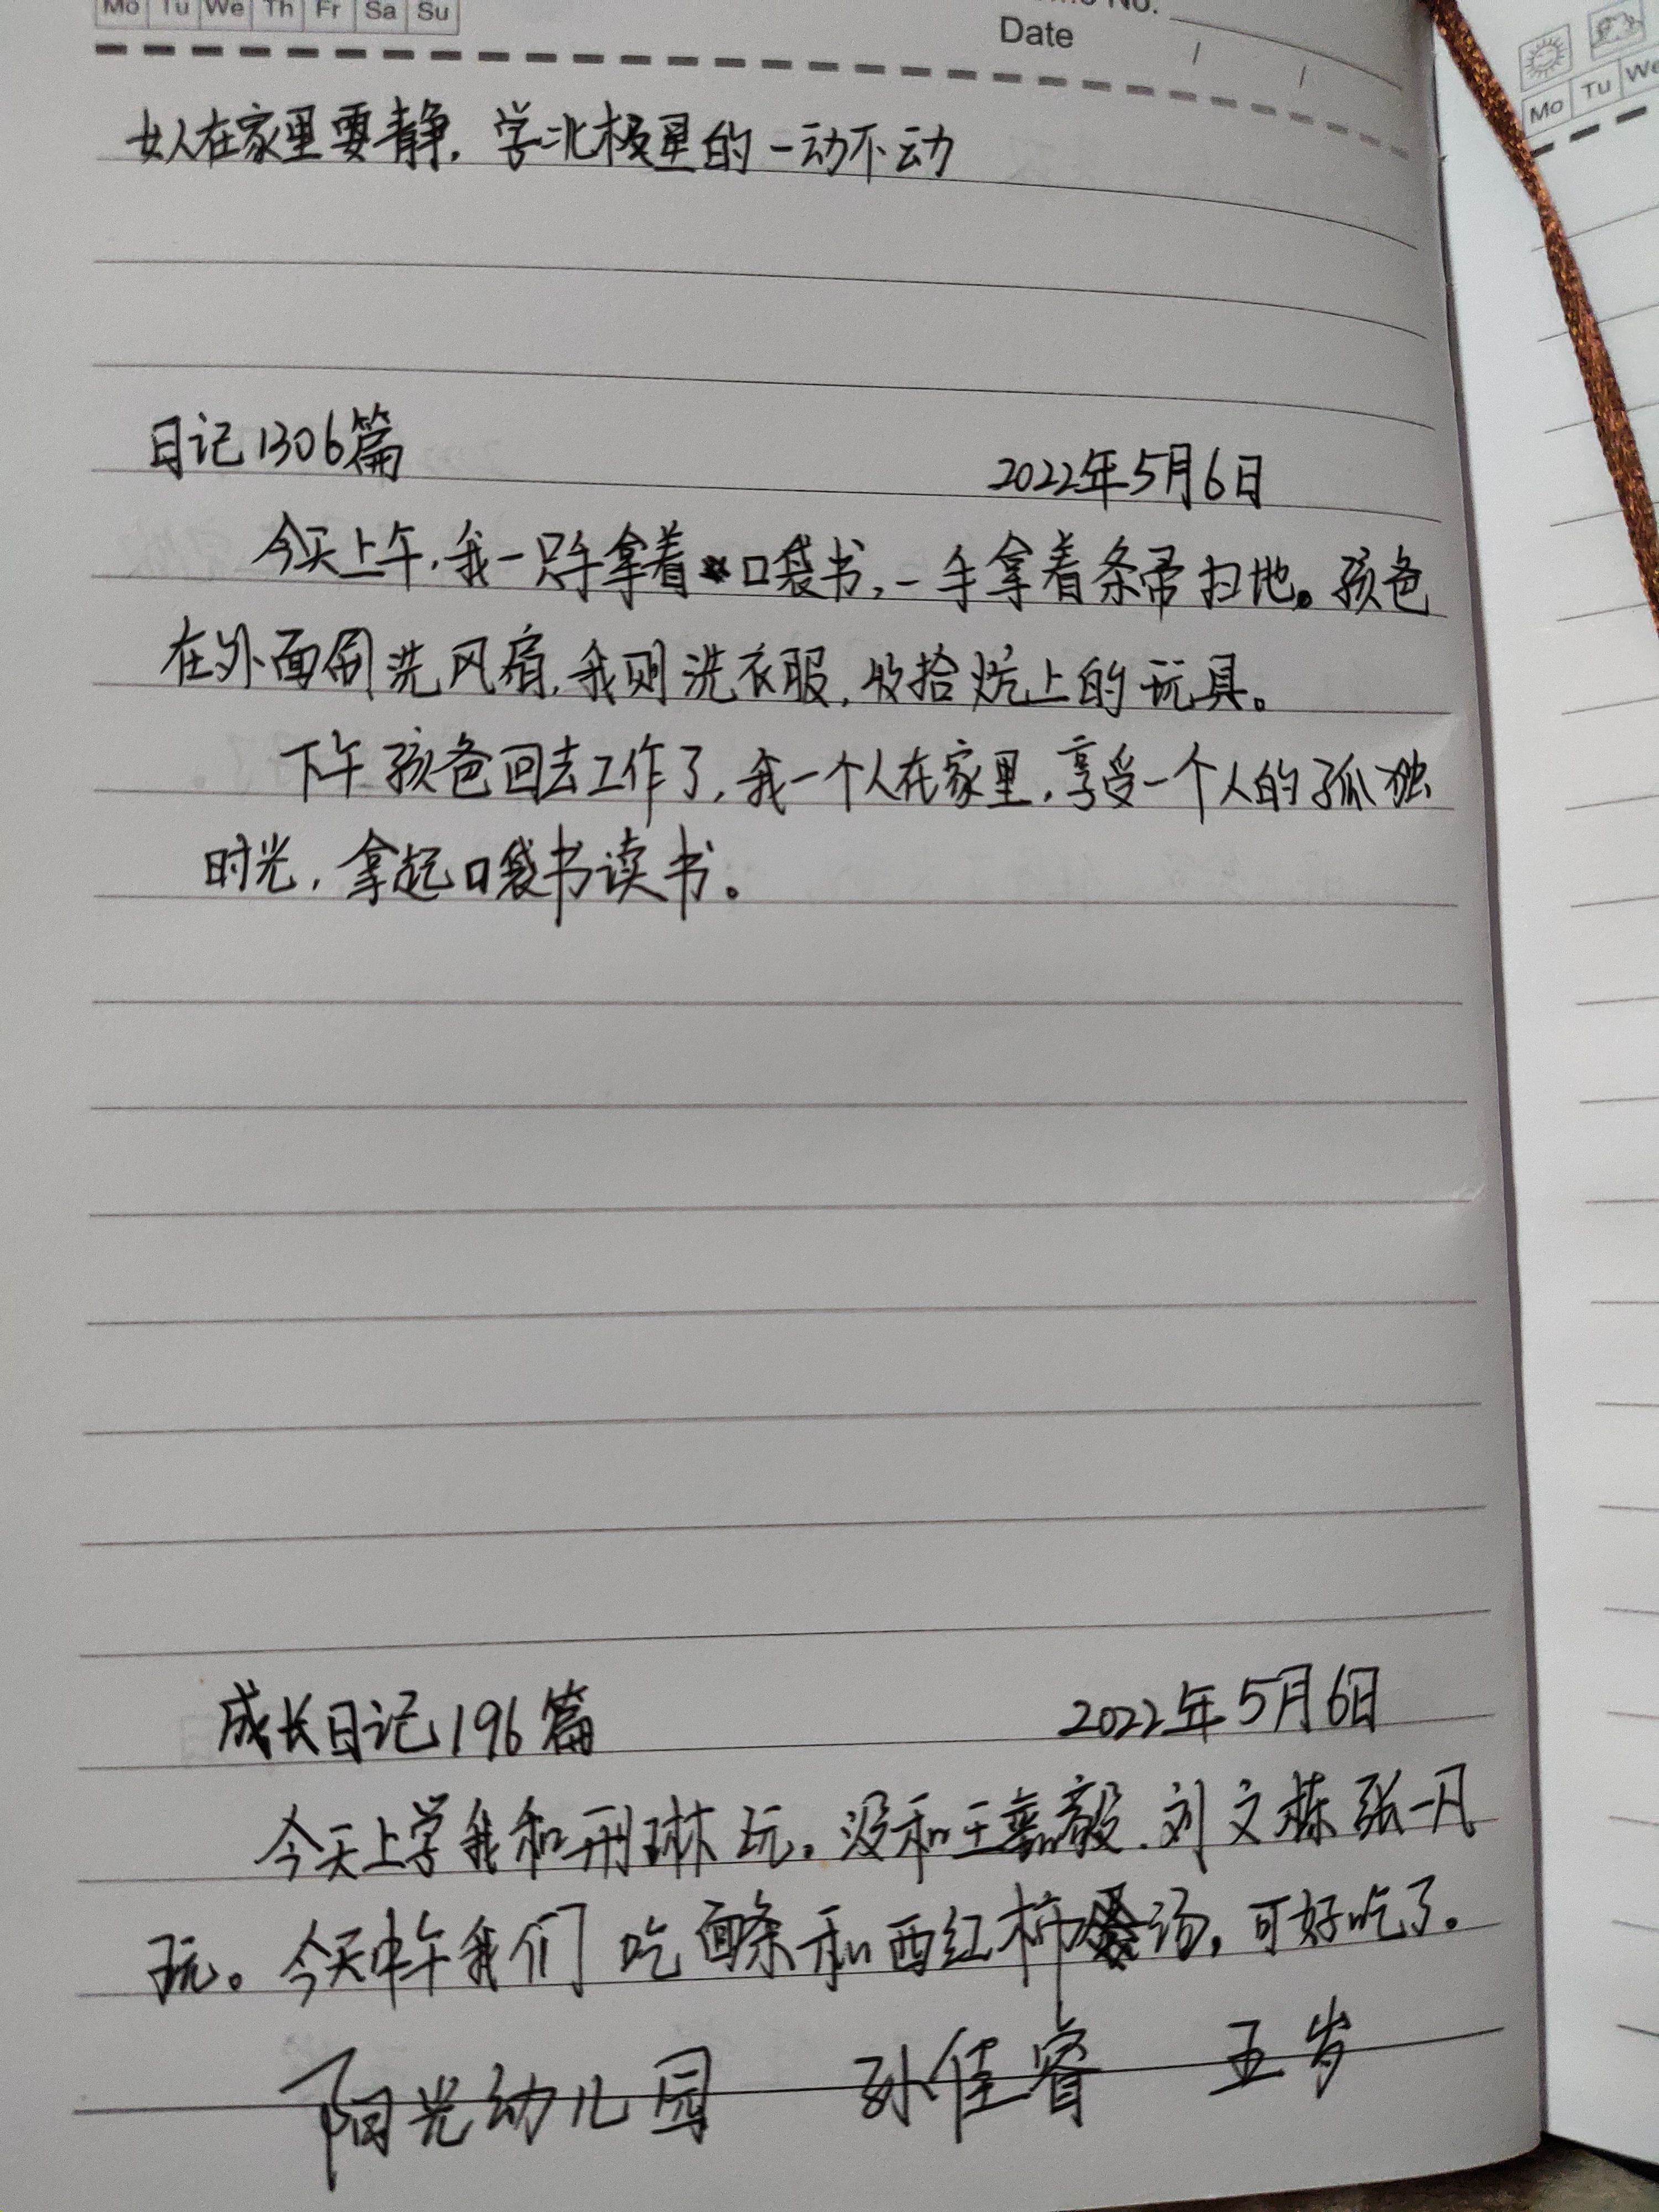 Mo Tu We Th Fr Sa Su
No.
Date
Mo Tu We
女人在家里要静，学北极星的一动不动
日记1306篇 2022年5月6日
今天上午，我一只手拿着口袋书，一手拿着条帚扫地。孩爸
在外面刷洗风扇，我则洗衣服，收拾炕上的玩具。
下午孩爸回去工作了，我一个人在家里，享受一个人的孤独
时光，拿起口袋书读书。
成长日记196篇 2022年5月6日
今天上学我和邢琳玩。没和王嘉毅．刘文栋张一凡
玩。今天中午我们吃面条和西红柿汤，可好吃了。
阳光幼儿园 孙佳睿 五岁